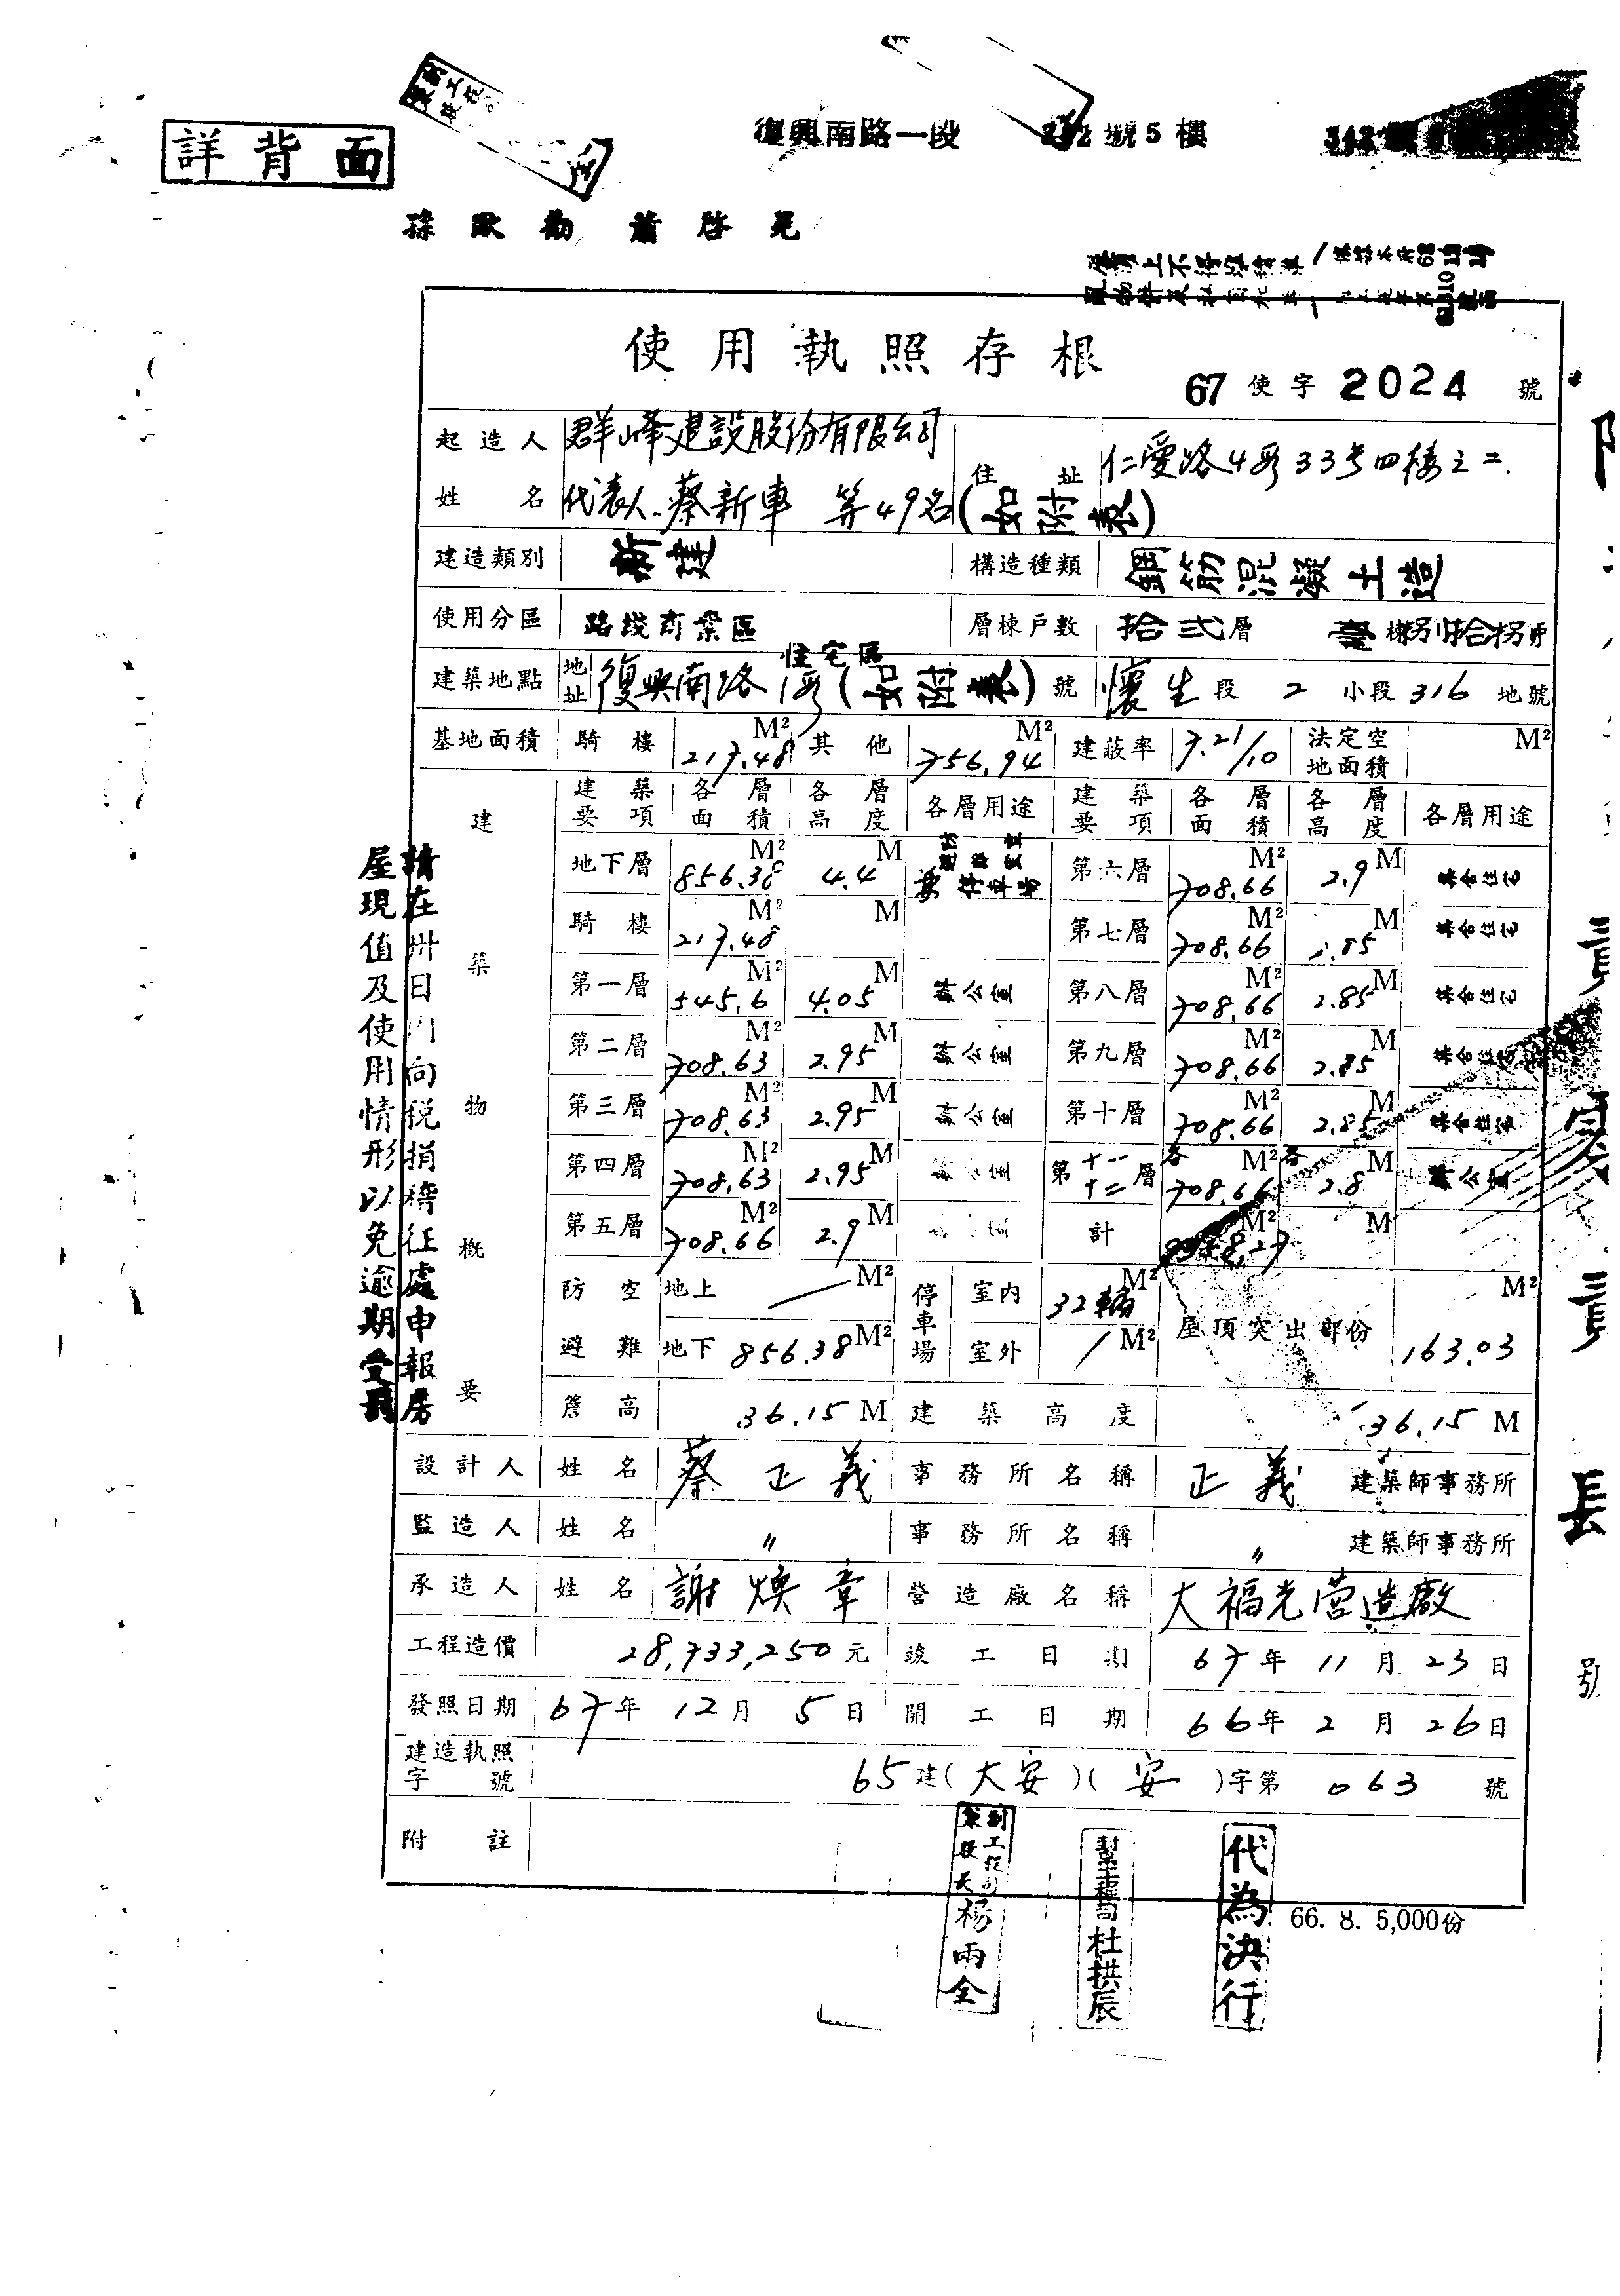 詳背面
復興南路一段 號5樓
孫歐勸 蕭啓晃
使用執照存根
67使字2024號
起造人姓名 群峰建設股份有限公司 代表人.蔡新車 等49名(如附表) 住址 仁愛路4段33号四樓之二.
建造類別 新建 構造種類 鋼筋混凝土造
使用分區 路綫商業區 住宅區 層棟戶數 拾弍層 壹棟捌拾捌戶
建築地點 地址 復興南路1段(如附表)號 懷生段 2小段316地號
基地面積 騎樓 217.48 M² 其他 756.94 M² 建蔽率 7.21/10 法定空地面積 M²
建築物概要
建築要項 各層面積 各層高度 各層用途 建築要項 各層面積 各層高度 各層用途
地下層 856.38 M² 4.4 M 停車場 第六層 708.66 M² 2.9 M 集合住宅
騎樓 217.48 M² M 第七層 708.66 M² 2.85 M 集合住宅
第一層 545.6 M² 4.05 M 辦公室 第八層 708.66 M² 2.85 M 集合住宅
第二層 708.63 M² 2.95 M 辦公室 第九層 708.66 M² 2.85 M 集合住宅
第三層 708.63 M² 2.95 M 辦公室 第十層 708.66 M² 2.85 M 集合住宅
第四層 708.63 M² 2.95 M 第十一十二層 各708.66 M² 各2.8 M 辦公室
第五層 708.66 M² 2.9 M 計 M² M
防空避難 地上 / M² 停車場 室內 32輛 M² 屋頂突出部份 163.03 M²
地下 856.38 M² 室外 / M²
簷高 36.15 M 建築高度 36.15 M
設計人 姓名 蔡正義 事務所名稱 正義 建築師事務所
監造人 姓名 〃 事務所名稱 〃 建築師事務所
承造人 姓名 謝煥章 營造廠名稱 大福光营造廠
工程造價 28,733,250元 竣工日期 67年11月23日
發照日期 67年12月5日 開工日期 66年2月26日
建造執照字號 65建(大安)(安)字第063號
附註
請在卅日內向稅捐稽征處申報房
屋現值及使用情形以免逾期受罰
副工程司
楊雨全
幫工程司杜拱辰
代為決行
66. 8. 5,000份
長
号